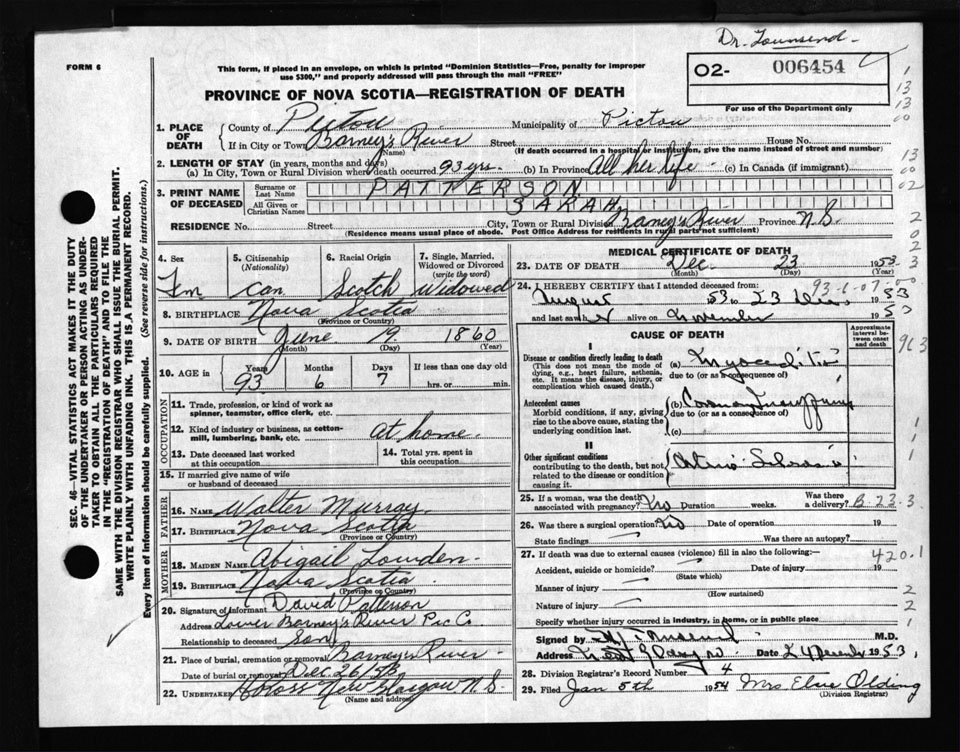 Dr. Townsend
FORM 6
This form, if placed in an envelope, on which is printed "Dominion Statistics—Free, penalty for improper
use $300," and properly addressed will pass through the mail "FREE"
O2- 006454
For use of the Department only
PROVINCE OF NOVA SCOTIA—REGISTRATION OF DEATH
1. PLACE OF DEATH
County of Pictou Municipality of Pictou
If in City or Town Barney's River Street House No.
(Name) (If death occurred in a hospital or institution, give the name instead of street and number)
2. LENGTH OF STAY (in years, months and days)
(a) In City, Town or Rural Division where death occurred 93 yrs. (b) In Province All her life (c) In Canada (if immigrant)
3. PRINT NAME OF DECEASED
Surname or Last Name PATTERSON
All Given or Christian Names SARAH
RESIDENCE No. Street City, Town or Rural Division Barney's River Province N.S.
(Residence means usual place of abode. Post Office Address for residents in rural parts not sufficient)
4. Sex Fm
5. Citizenship (Nationality) Can
6. Racial Origin Scotch
7. Single, Married, Widowed or Divorced (write the word) Widowed
8. BIRTHPLACE Nova Scotia
(Province or Country)
9. DATE OF BIRTH June 19 1860
(Month) (Day) (Year)
10. AGE in Years Months Days If less than one day old
93 6 7 hrs. or min.
OCCUPATION
11. Trade, profession, or kind of work as
spinner, teamster, office clerk, etc.
12. Kind of industry or business, as cotton-
mill, lumbering, bank, etc. at home.
13. Date deceased last worked at this occupation
14. Total yrs. spent in this occupation
15. If married give name of wife
or husband of deceased
FATHER
16. Name Walter Murray
17. Birthplace Nova Scotia
(Province or Country)
MOTHER
18. Maiden Name Abigail Lowden
19. Birthplace Nova Scotia
(Province or Country)
20. Signature of Informant David Patterson
Address Lower Barney's River Pic Co.
Relationship to deceased Son
21. Place of burial, cremation or removal Barneys River
Date of burial or removal Dec 26/53
22. Undertaker New Glasgow N.S.
(Name and address)
MEDICAL CERTIFICATE OF DEATH
23. DATE OF DEATH Dec. 23 1953
(Month) (Day) (Year)
24. I HEREBY CERTIFY that I attended deceased from:
August 53 to 23 Dec 1953
and last saw h alive on November 1953
93-6-07-00
CAUSE OF DEATH
Approximate interval between onset and death
I
Disease or condition directly leading to death
(This does not mean the mode of dying, e.g., heart failure, asthenia, etc. It means the disease, injury, or complication which caused death.)
(a)
due to (or as a consequence of)
Antecedent causes
Morbid conditions, if any, giving rise to the above cause, stating the underlying condition last.
(b)
due to (or as a consequence of)
(c)
II
Other significant conditions
contributing to the death, but not related to the disease or condition causing it.
25. If a woman, was the death associated with pregnancy? No Duration weeks. Was there a delivery? B-23-3
26. Was there a surgical operation? No Date of operation 19
State findings Was there an autopsy?
27. If death was due to external causes (violence) fill in also the following:— 420.1
Accident, suicide or homicide? Date of injury 19
(State which)
Manner of injury
(How sustained)
Nature of injury
Specify whether injury occurred in industry, in home, or in public place
Signed by Townsend M.D.
Address Date 24 December 1953
28. Division Registrar's Record Number 4
29. Filed Jan 5th 1954 Mrs Elsie Olding
(Division Registrar)
SEC. 46—VITAL STATISTICS ACT MAKES IT THE DUTY
OF THE UNDERTAKER OR PERSON ACTING AS UNDER-
TAKER TO OBTAIN ALL THE PARTICULARS REQUIRED
IN THE "REGISTRATION OF DEATH" AND TO FILE THE
SAME WITH THE DIVISION REGISTRAR WHO SHALL ISSUE THE BURIAL PERMIT.
WRITE PLAINLY WITH UNFADING INK. THIS IS A PERMANENT RECORD.
Every item of information should be carefully supplied. (See reverse side for instructions.)